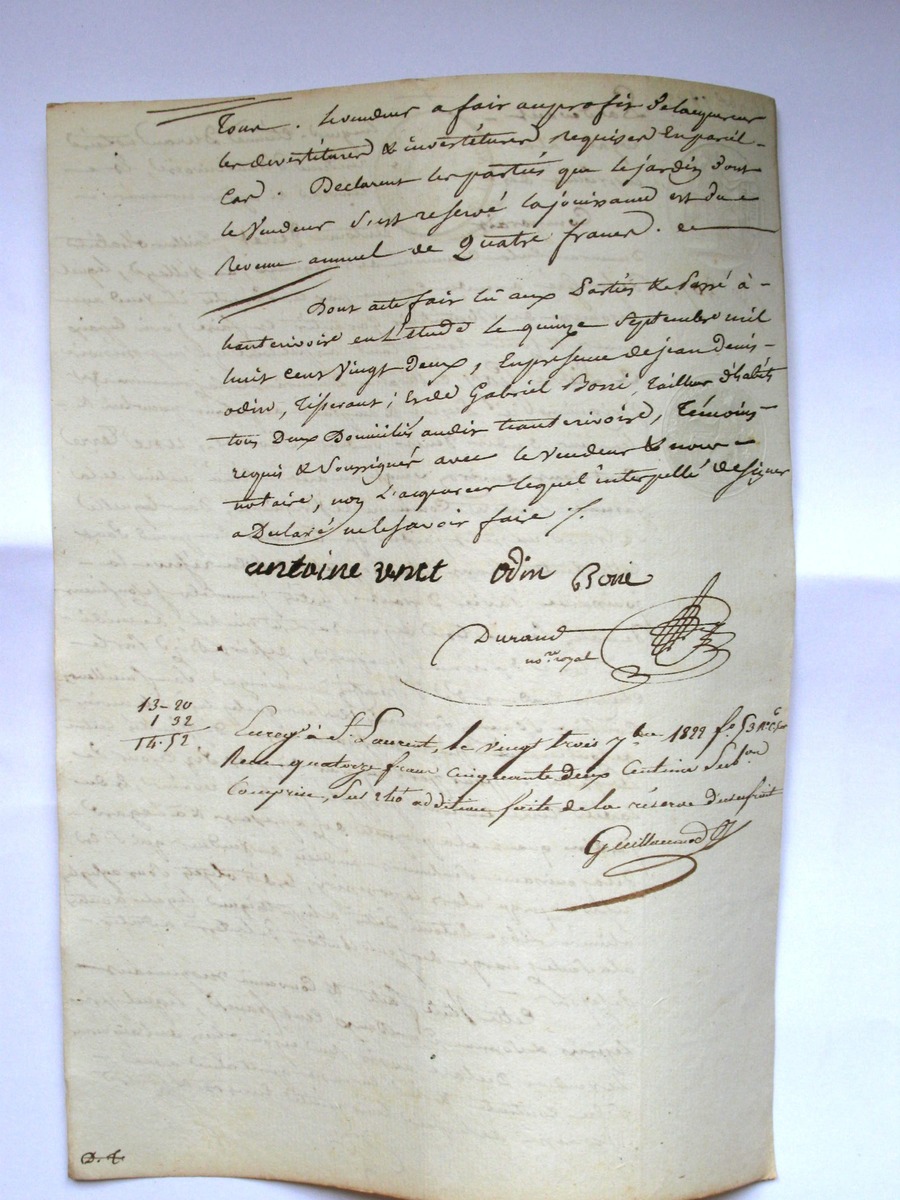 Tour. Le vendeur a fait au profit de l'acquereur
les devestitures & investitures requises En pareil
Cas. Declarent les parties que le jardin dont
le Vendeur s'est reservé la jouissance est d'un
Revenu annuel de Quatre francs.
Dont acte fait lû aux Parties & Passé à
hauterivoire en L'étude le quinze Septembre mil
huit cent vingt deux, En présence de jean denis
odin, Tisserant, Et de Gabriel Borie, Tailleur d'habits
tous deux Domiciliés audit hauterivoire, Témoins
requis & Soussignés avec le vendeur & nous
notaire, non L'acquereur lequel interpellé de signer
a Declaré ne le savoir faire ./.
antoine vnct odin Borie
Durand
no.re royal
13-20
1 32
14.52
Enreg.é à St Laurent, le vingt trois 7bre 1822 f.o 53
Reçu quatorze francs cinquante deux Centimes
Comprise, sur 240 addition faite de la réserve d'usufruit
Guillermod
D. t